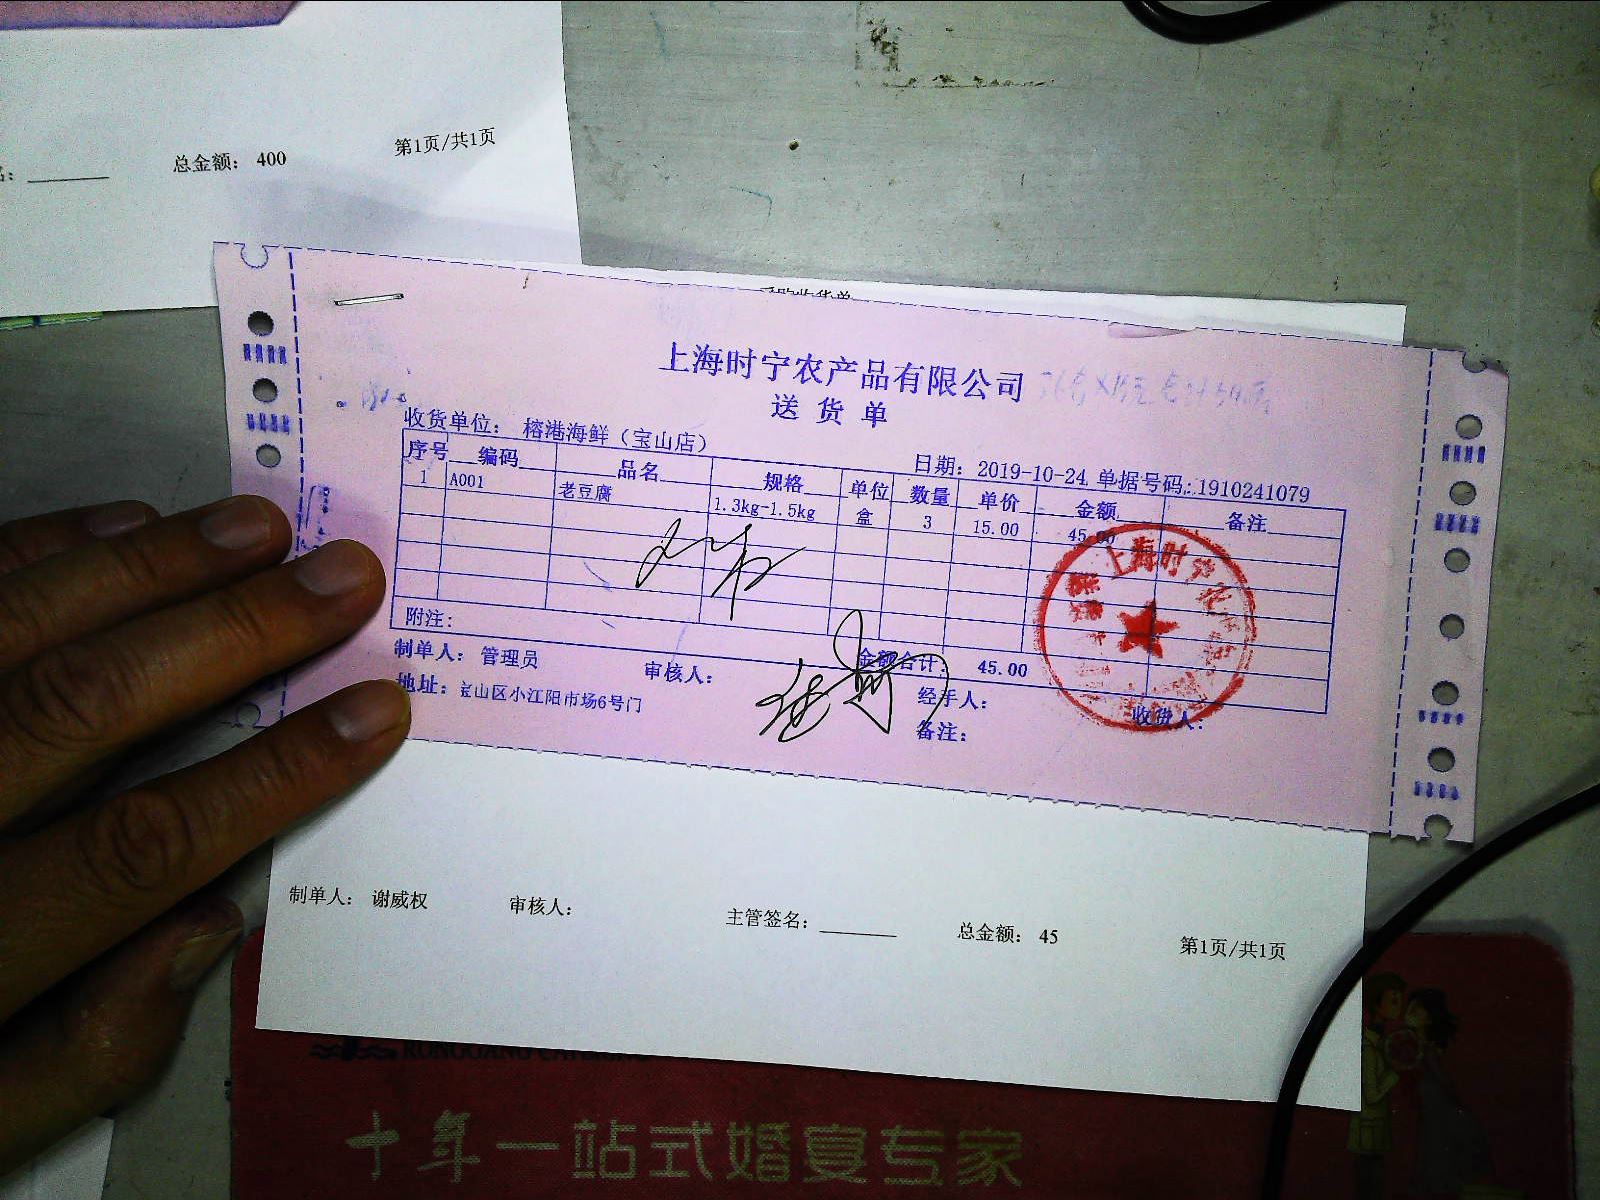 总金额： 400
第1页/共1页
上海时宁农产品有限公司
送 货 单
收货单位： 榕港海鲜（宝山店）
日期：2019-10-24 单据号码：1910241079
序号 编码 品名 规格 单位 数量 单价 金额 备注
1 A001 老豆腐 1.3kg-1.5kg 盒 3 15.00 45.00
附注：
金额合计 45.00
制单人：管理员 审核人： 经手人： 收货人：
地址：宝山区小江阳市场6号门 备注：
上海时宁农
制单人： 谢威权 审核人： 主管签名： 总金额： 45 第1页/共1页
十年一站式婚宴专家